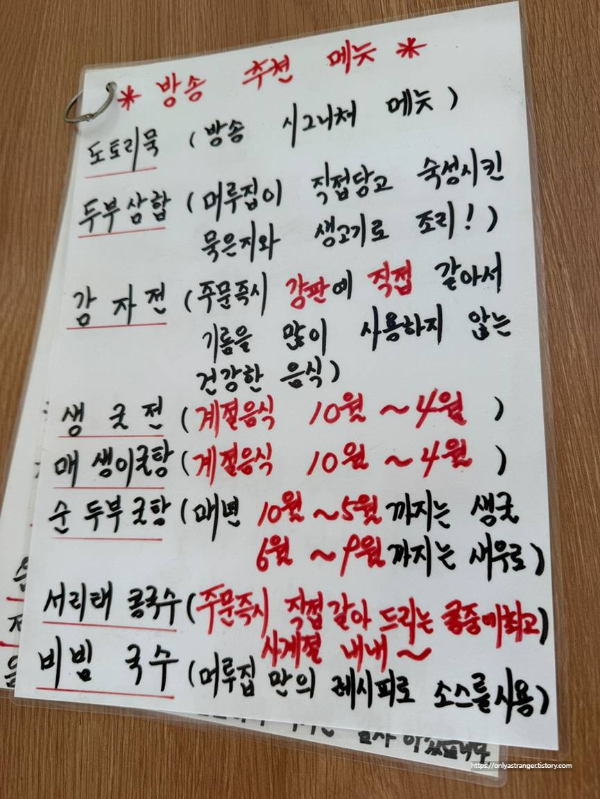 * 방송 추천 메뉴 *
도토리묵 (방송 시그니처 메뉴)
두부삼합 (머루집이 직접담고 숙성시킨
묵은지와 생고기로 조리!)
감자전 (주문즉시 강판에 직접 갈아서
기름을 많이 사용하지 않는
건강한 음식)
생굿전 (계절음식 10월 ~ 4월 )
매생이굿탕 (계절음식 10월 ~ 4월 )
순두부굿탕 (매년 10월 ~ 5월 까지는 생굿
6월 ~ 9월 까지는 새우로)
서리태 콩국수 (주문즉시 직접갈아 드리는 콩중에최고)
사계절 내내 ~
비빔 국수 (머루집 만의 레시피로 소스를 사용)
https://onlyastrangect.tistory.com